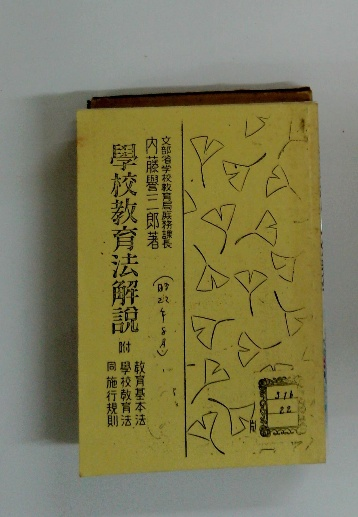 文部省学校教育局庶務課長
内藤譽三郎著
學校教育法解説
附
教育基本法
學校教育法
同施行規則
(昭22年8月)
316
22